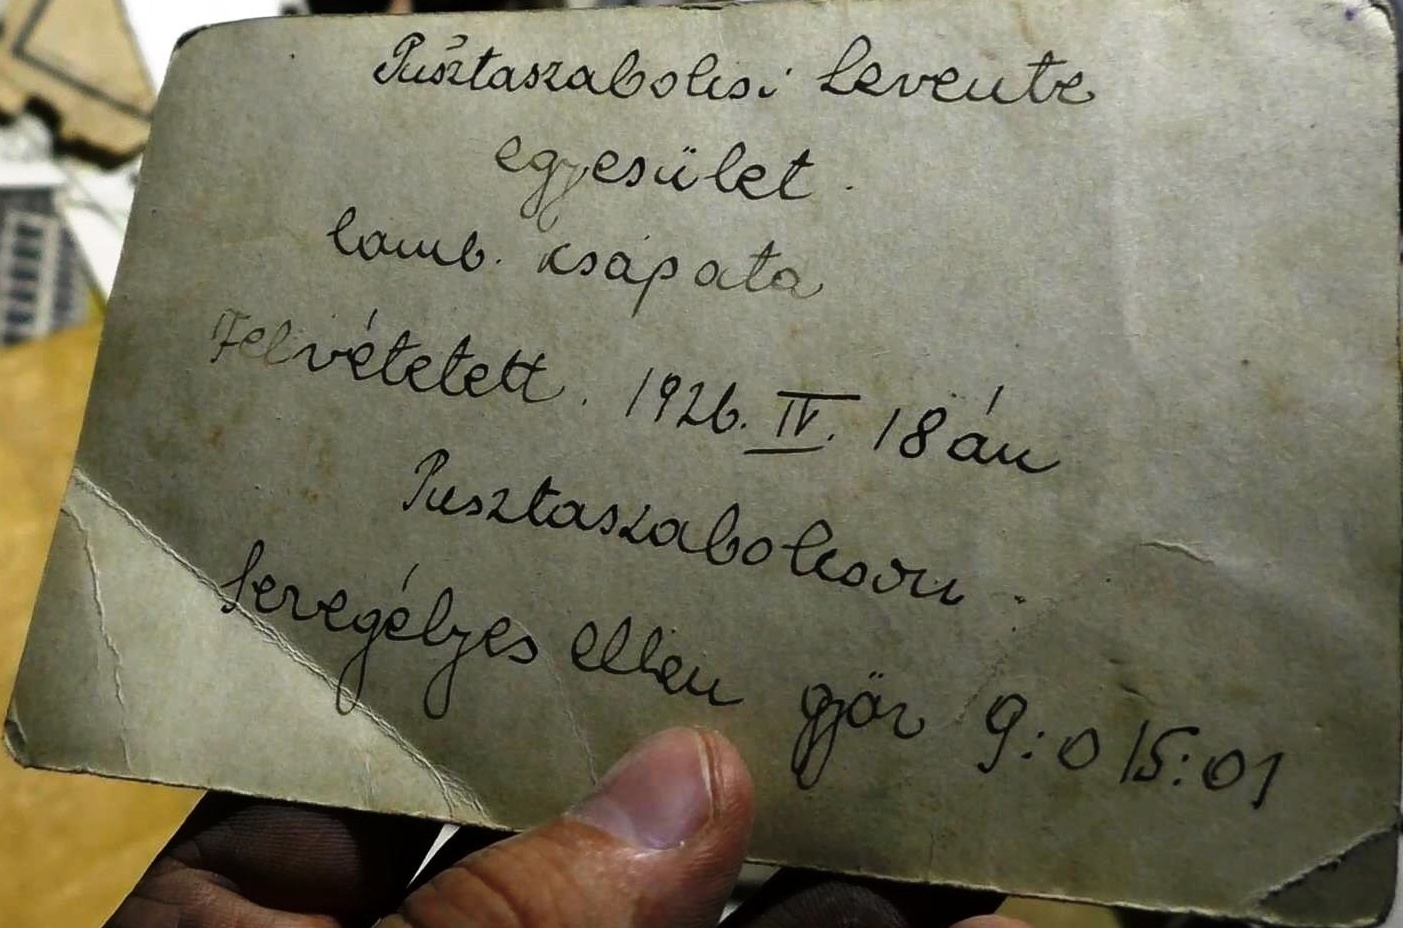 Pusztaszabolcsi Levente
egyesület.
lamb. csápata
Felvétetett. 1926. IV. 18án
Pusztaszabolcson.
Seregélyes ellen győr 9:0 (5:0)